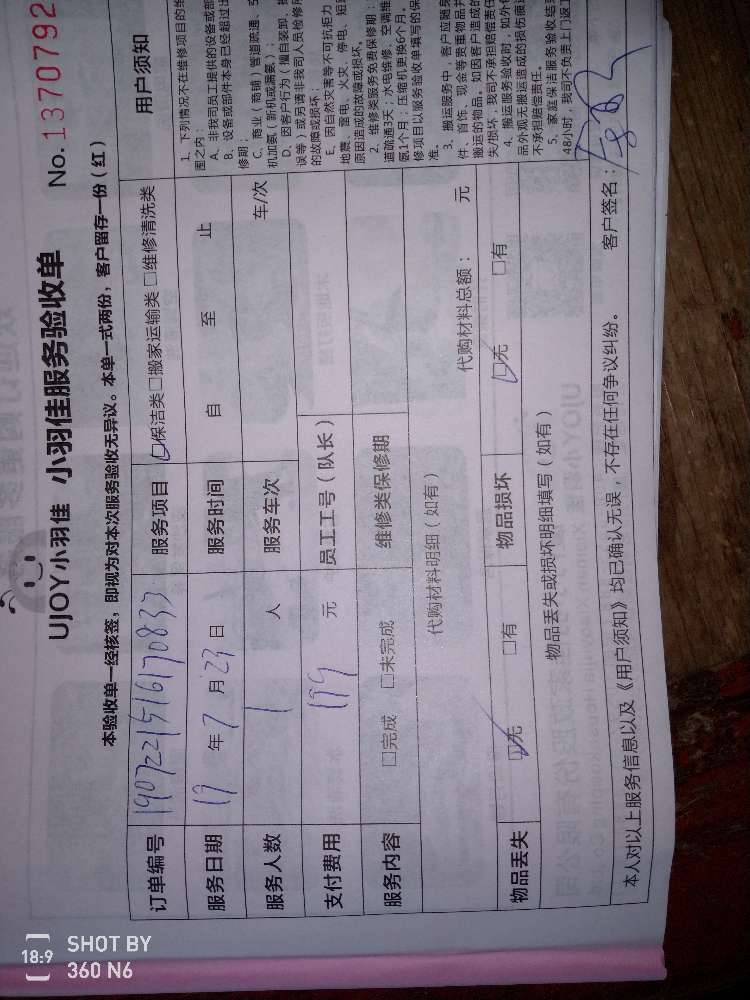 UJOY小羽佳 小羽佳服务验收单 No. 1370792
本验收单一经核签，即视为对本次服务验收无异议。本单一式两份，客户留存一份（红）
订单编号 服务项目 保洁类 □搬家运输类 □维修清洗类
服务日期 19 年 7 月 23 日 服务时间 自 至 止
服务人数 1 人 服务车次 车/次
支付费用 元 员工工号（队长）
服务内容 □完成 □未完成 维修类保修期
代购材料明细（如有） 代购材料总额： 元
物品丢失 无 □有 物品损坏 无 □有
物品丢失或损坏明细填写（如有）
本人对以上服务信息以及《用户须知》均已确认无误，不存在任何争议纠纷。 客户签名：
用户须知
1、下列情况不在维修项目的维
围之内：
A、非我司员工提供的设备或部
B、设备或部件本身已经超过出
修期；
C、商业（商铺）管道疏通、空
机加氨（新机或漏氨）；
D、因客户行为（擅自装卸、
误等）或另请非我司人员检修
的故障或损坏；
E、因自然灾害等不可抗拒力
地震、雷电、火灾、停电、短
原因造成的故障或损坏。
2、维修类服务免费保修期：
道疏通3天；水电维修、空调维
氨1个月；压缩机更换6个月。
修项目以服务验收单填写的保
准。
3、搬运服务中，客户应随身
件、首饰、现金等贵重物品
搬运的物品。如因客户造成的
失/损坏，我司不承担赔偿责任
4、搬运服务验收时，如外包
品外观无搬运造成的损伤痕
不承担赔偿责任。
5、家庭保洁服务验收结
48小时，我司不负责上门返工
18:9 SHOT BY
360 N6